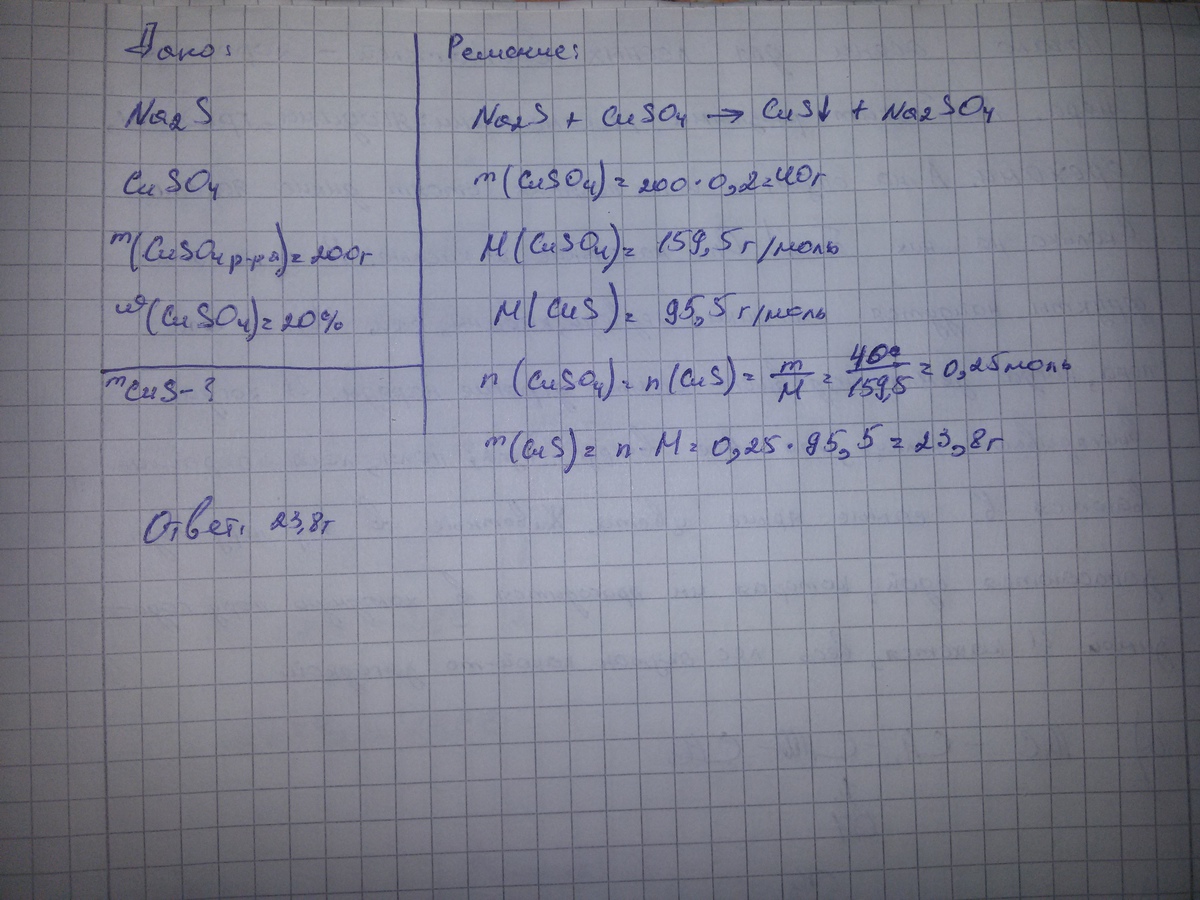 Дано:
Na2S
CuSO4
m(CuSO4 р-ра) = 200г
ω(CuSO4) = 20%
mCuS - ?
Решение:
Na2S + CuSO4 → CuS↓ + Na2SO4
m(CuSO4) = 200 · 0,2 = 40г
M(CuSO4) = 159,5 г/моль
M(CuS) = 95,5 г/моль
n(CuSO4) = n(CuS) = m/M = 40г/159,5 = 0,25 моль
m(CuS) = n · M = 0,25 · 95,5 = 23,8г
Ответ: 23,8г